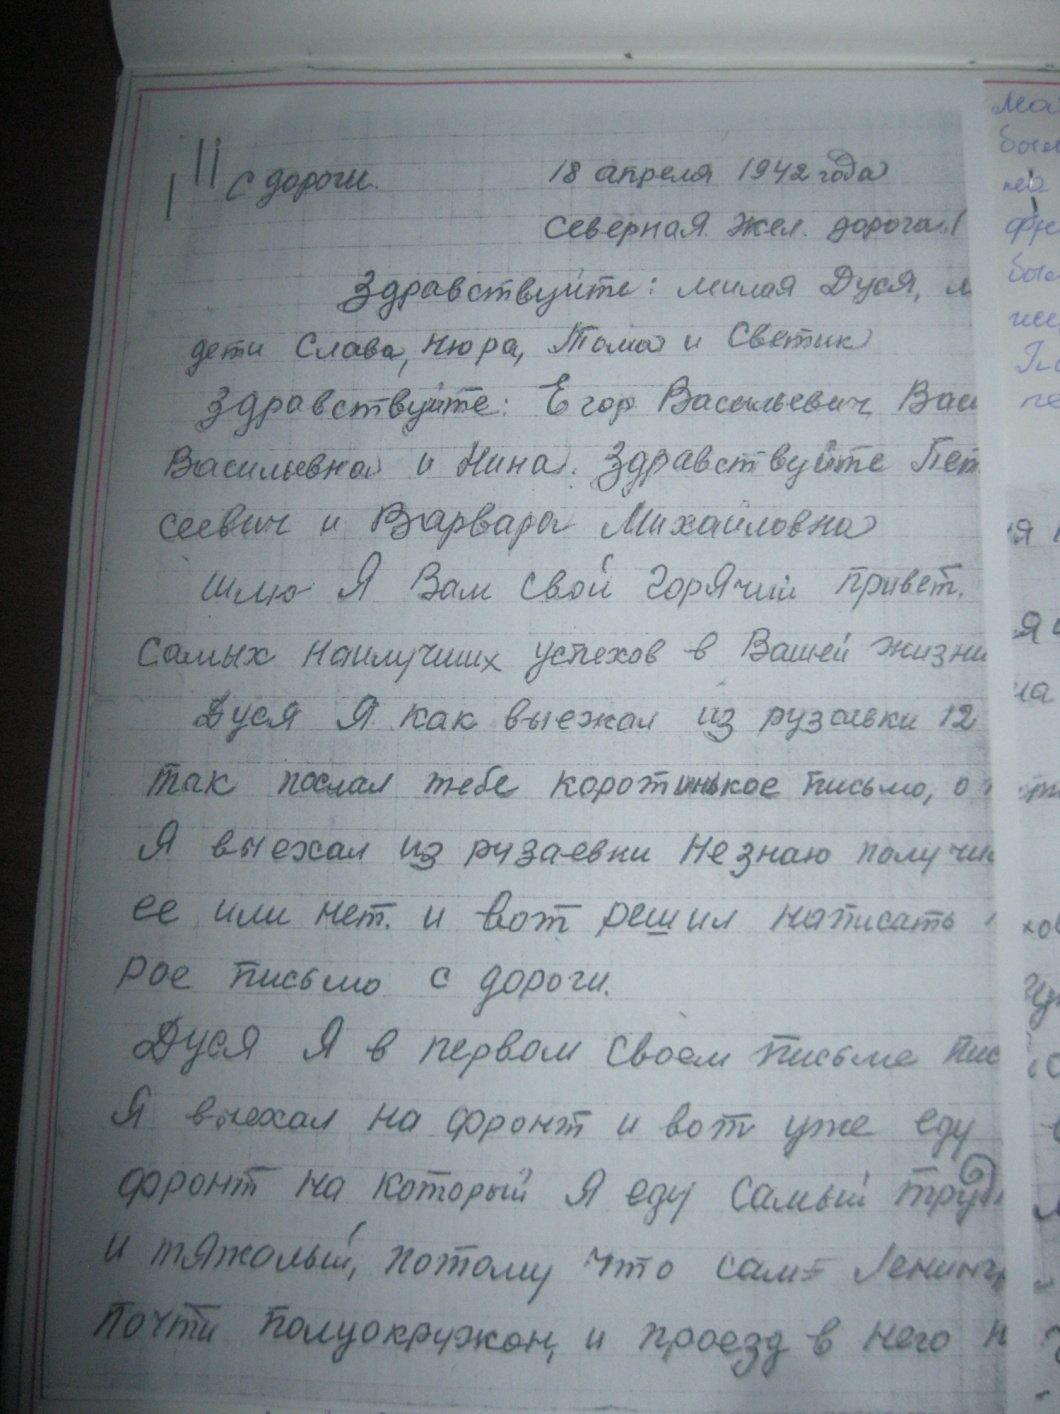 11 с дороги. 18 апреля 1942 года
Северная жел. дорога.
Здравствуйте: милая Дуся, м
дети Слава, Нюра, Тома и Светик
Здравствуйте: Егор Васильевич, Вас
Васильевна и Нина. Здравствуйте Пет
сеевич и Варвара Михайловна
Шлю Я Вам свой горячий привет.
Самых наилучших успехов в Вашей жизни
Дуся Я как выезжал из рузаевки 12
так послал тебе коротинькое письмо, о
Я выехал из рузаевки Незнаю получи
ее или нет. и вот решил написать
рое письмо с дороги.
Дуся Я в первом своем письме пис
Я выехал на фронт и вот уже еду
фронт на который Я еду самый труд
и тяжолый, потому что сам Ленингр
почти полуокружон, и проезд в него н